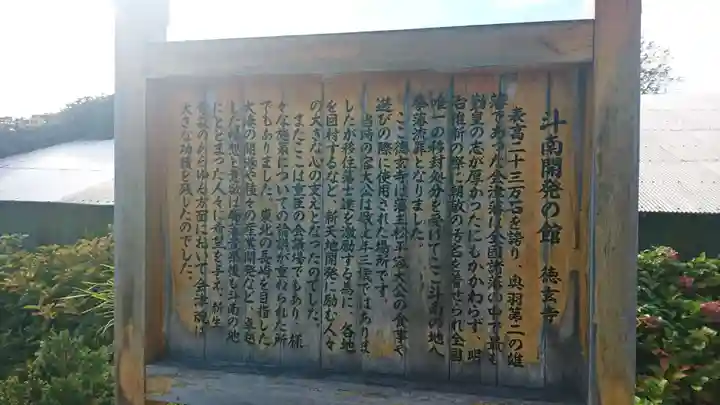 斗南開発の館 徳玄寺
表高二十三万石を誇り、奥羽第二の雄
藩であった会津藩は全国諸藩の中で最も
勤皇の志が厚かったにもかかわらず、明
治維新の際に朝敵の汚名を着せられ全国
唯一の移封処分を受けてここ斗南の地へ
挙藩流罪となりました。
ここ徳玄寺は藩主松平容大公の食事や
遊びの際に使用された場所です。
当時の容大公は歳七年三ヶではありま
したが移住藩士達を激励する為に、各地
を回村するなど、新天地開発に励む人々
の大きな心の支えとなったのでした。
またここは重臣の会議場でもあり、様
々な施策についての論議が重ねられた所
でもありました。東北の長崎を目指した
大湊の開港や種々の産業開発など、卓越
した構想と意欲は廃藩置県後も斗南の地
にとどまった人々に希望を与え、新生
青森のあらゆる方面において会津魂は
大きな功績を残したのでした。